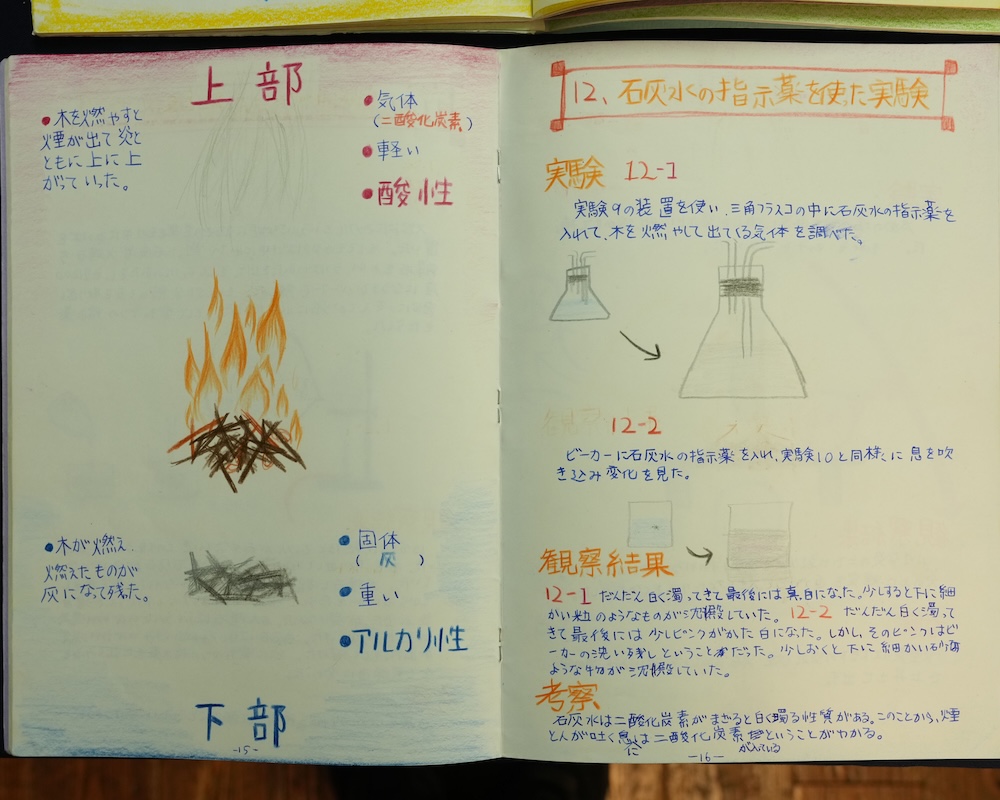 上部
• 木を燃やすと
煙が出て炎と
ともに上に上
がっていった。
• 気体
(二酸化炭素)
• 軽い
• 酸性
• 木が燃え、
燃えたものが
灰になって残た。
• 固体
(灰)
• 重い
• アルカリ性
下部
-15-
12、石灰水の指示薬を使た実験
実験 12-1
実験9の装置を使い、三角フラスコの中に石灰水の指示薬を
入れて、木を燃やして出てくる気体を調べた。
12-2
ビーカーに石灰水の指示薬を入れ、実験10と同様に息を吹
き込み変化を見た。
観察結果
12-1 だんだん白く濁ってきて最後には真白になった。少しすると下に細
かい粒のようなものが沈殿していた。 12-2 だんだん白く濁って
きて最後には少しピンクがかた白になった。しかし、そのピンクはビ
ーカーの洗い残しということだった。少しおくと下に細かい
ような物が沈殿していた。
考察
石灰水は二酸化炭素がまざると白く濁る性質がある。このことから、煙
と人が吐く息には二酸化炭素が入っているということがわかる。
-16-